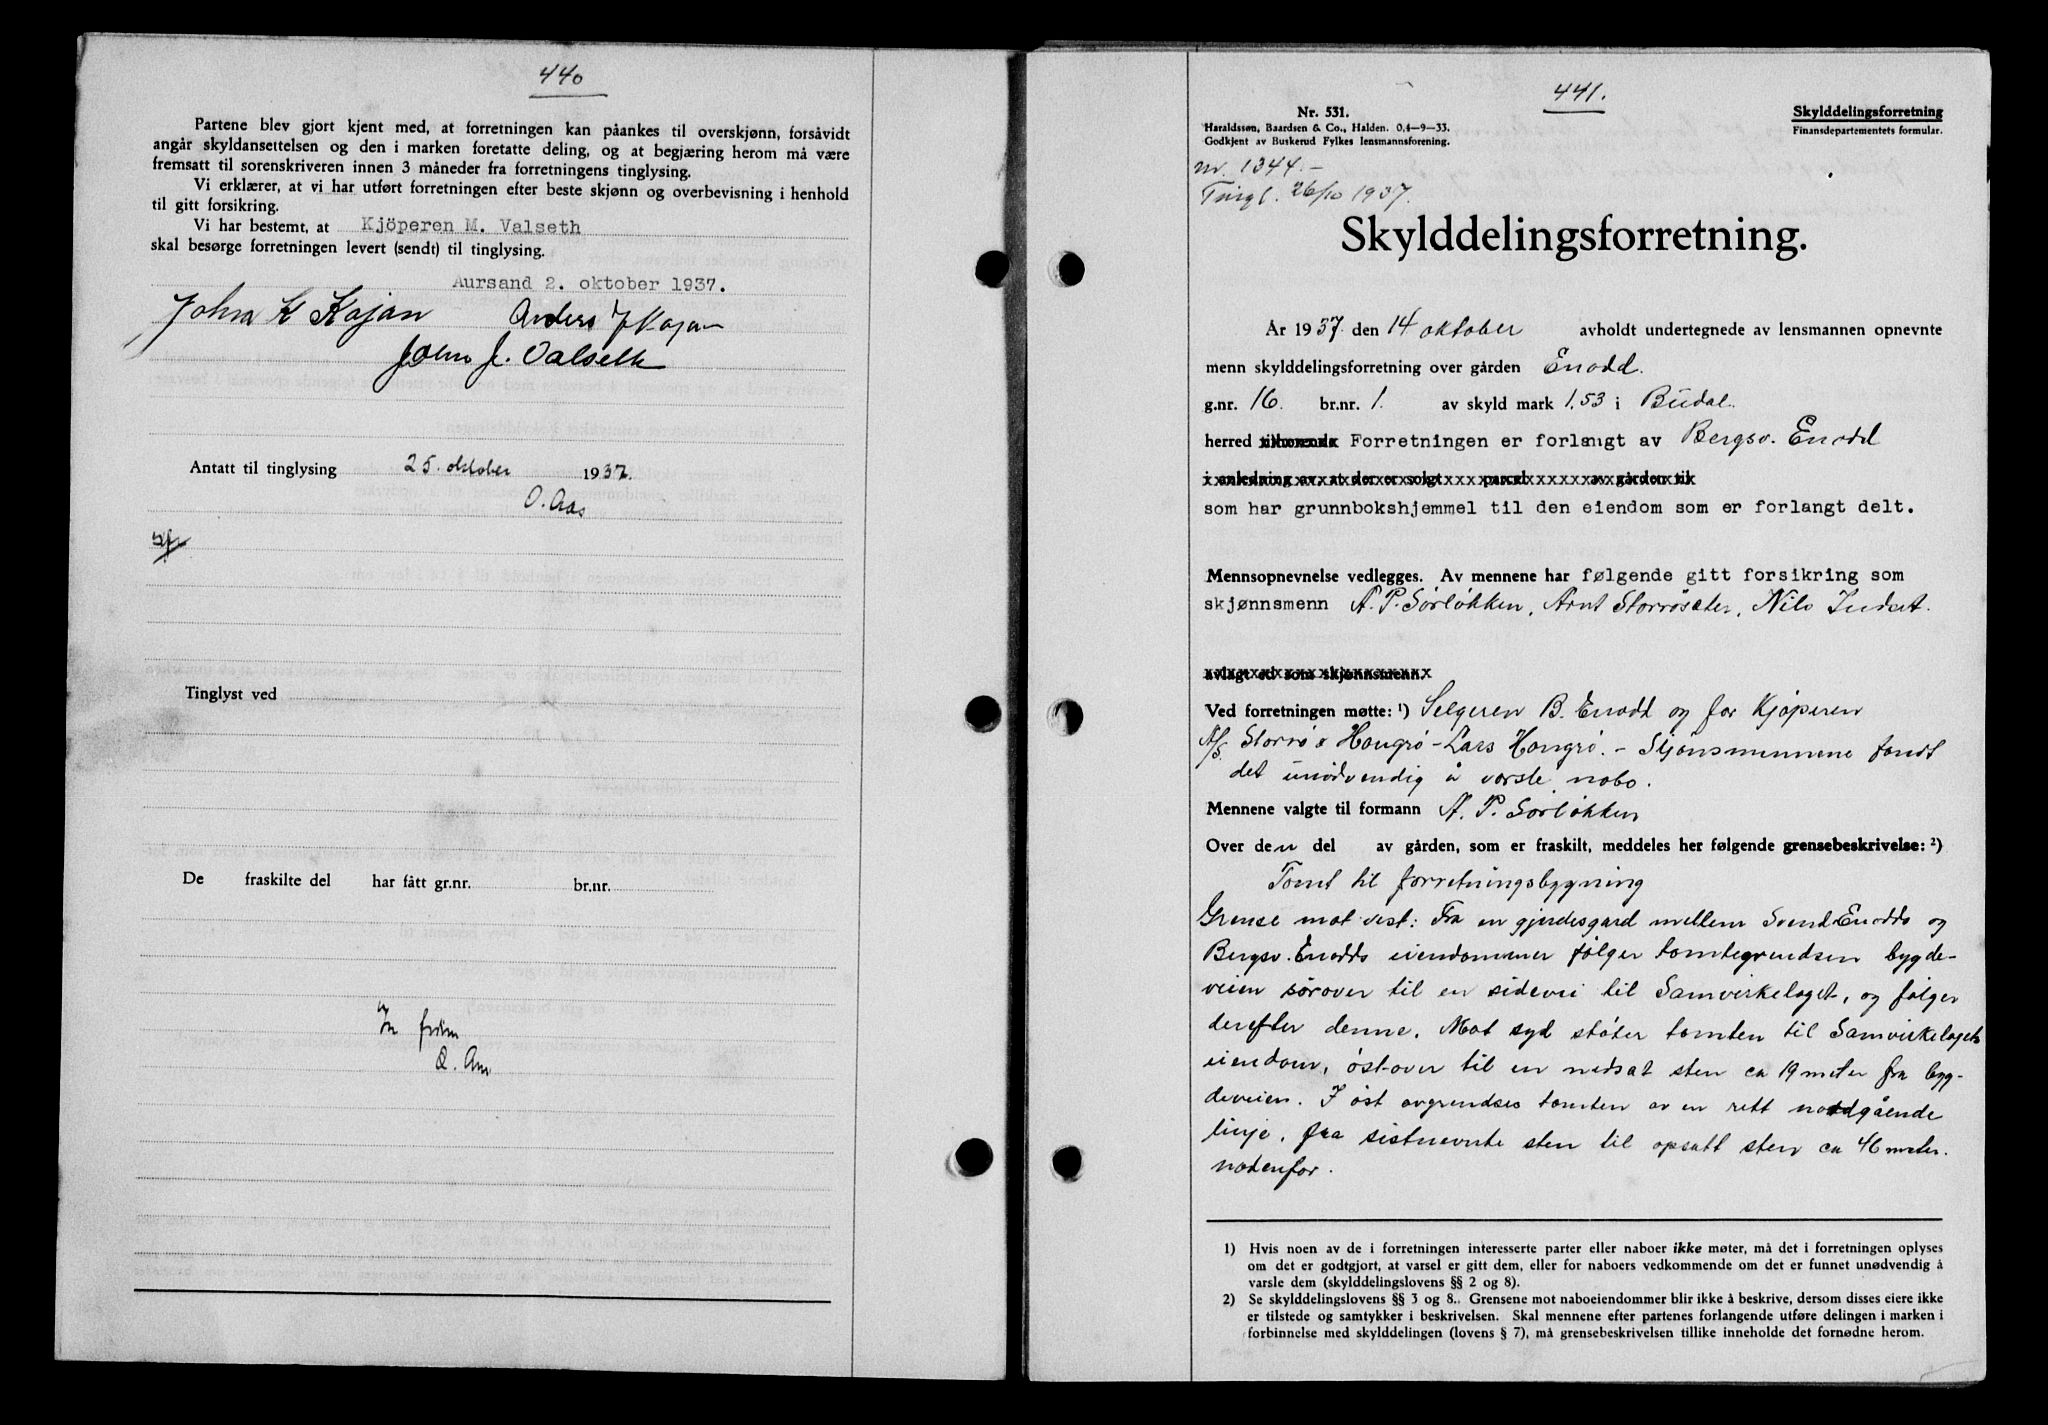 440
Partene blev gjort kjent med, at forretningen kan påankes til overskjønn, forsåvidt
angår skyldansettelsen og den i marken foretatte deling, og at begjæring herom må være
fremsatt til sorenskriveren innen 3 måneder fra forretningens tinglysing.
Vi erklærer, at vi har utført forretningen efter beste skjønn og overbevisning i henhold
til gitt forsikring.
Vi har bestemt, at Kjöperen M. Valseth
skal besørge forretningen levert (sendt) til tinglysing.
Aursand 2. oktober 1937.
John K Kojan Anders J Kojan
John J. Valseth
Antatt til tinglysing 25. oktober 1937.
O. Aas
Tinglyst ved
De fraskilte del har fått gr.nr. br.nr.
O. Aas
441.
Nr. 531.
Haraldssøn, Baardsen & Co., Halden. 0,4—9—33.
Godkjent av Buskerud Fylkes lensmannsforening.
Skylddelingsforretning
Finansdepartementets formular.
nr. 1344.-
Tingl. 26/10 1937.
Skylddelingsforretning.
År 1937 den 14 oktober avholdt undertegnede av lensmannen opnevnte
menn skylddelingsforretning over gården Enodd.
g.nr. 16. br.nr. 1. av skyld mark 1,53 i Budal.
herred tilhørende Forretningen er forlangt av Bergsv. Enodd
i anledning av, at der er solgt parcel av gården til
som har grunnbokshjemmel til den eiendom som er forlangt delt.
Mennsopnevnelse vedlegges. Av mennene har følgende gitt forsikring som
skjønnsmenn A. P. Sørløkken, Arnt Storrøsæter, Nils Indset.
avlagt ed som skjønnsmenn.
Ved forretningen møtte: 1) Selgeren B. Enodd og for Kjøperen
A/S. Storrø & Haugrø - Lars Haugrø. - Skjønsmennene fandt
det unødvendig å varsle nabo.
Mennene valgte til formann A. P. Sørløkken
Over den del av gården, som er fraskilt, meddeles her følgende grensebeskrivelse: 2)
Tomt til forretningsbygning
Grense mot vest: Fra en gjerdesgard mellem Svend Enodds og
Bergsv. Enodds eiendommer følger tomtegrendsen bygde-
veien sørover til en sidevei til Samvirkelaget, og følger
derefter denne. Mot syd støter tomten til Samvirkelagets
eiendom, østover til en nedsat sten ca 19 meter fra byg-
deveien. I øst avgrendses tomten av en rett nordgående
linje, fra sistnevnte sten til opsatt sten ca 46 meter.
nordenfor.
1) Hvis noen av de i forretningen interesserte parter eller naboer ikke møter, må det i forretningen oplyses
om det er godtgjort, at varsel er gitt dem, eller for naboers vedkommende om det er funnet unødvendig å
varsle dem (skylddelingslovens §§ 2 og 8).
2) Se skylddelingslovens §§ 3 og 8. Grensene mot naboeiendommer blir ikke å beskrive, dersom disses eiere ikke
er tilstede og samtykker i beskrivelsen. Skal mennene efter partenes forlangende utføre delingen i marken i
forbinnelse med skylddelingen (lovens § 7), må grensebeskrivelsen tillike inneholde det fornødne herom.